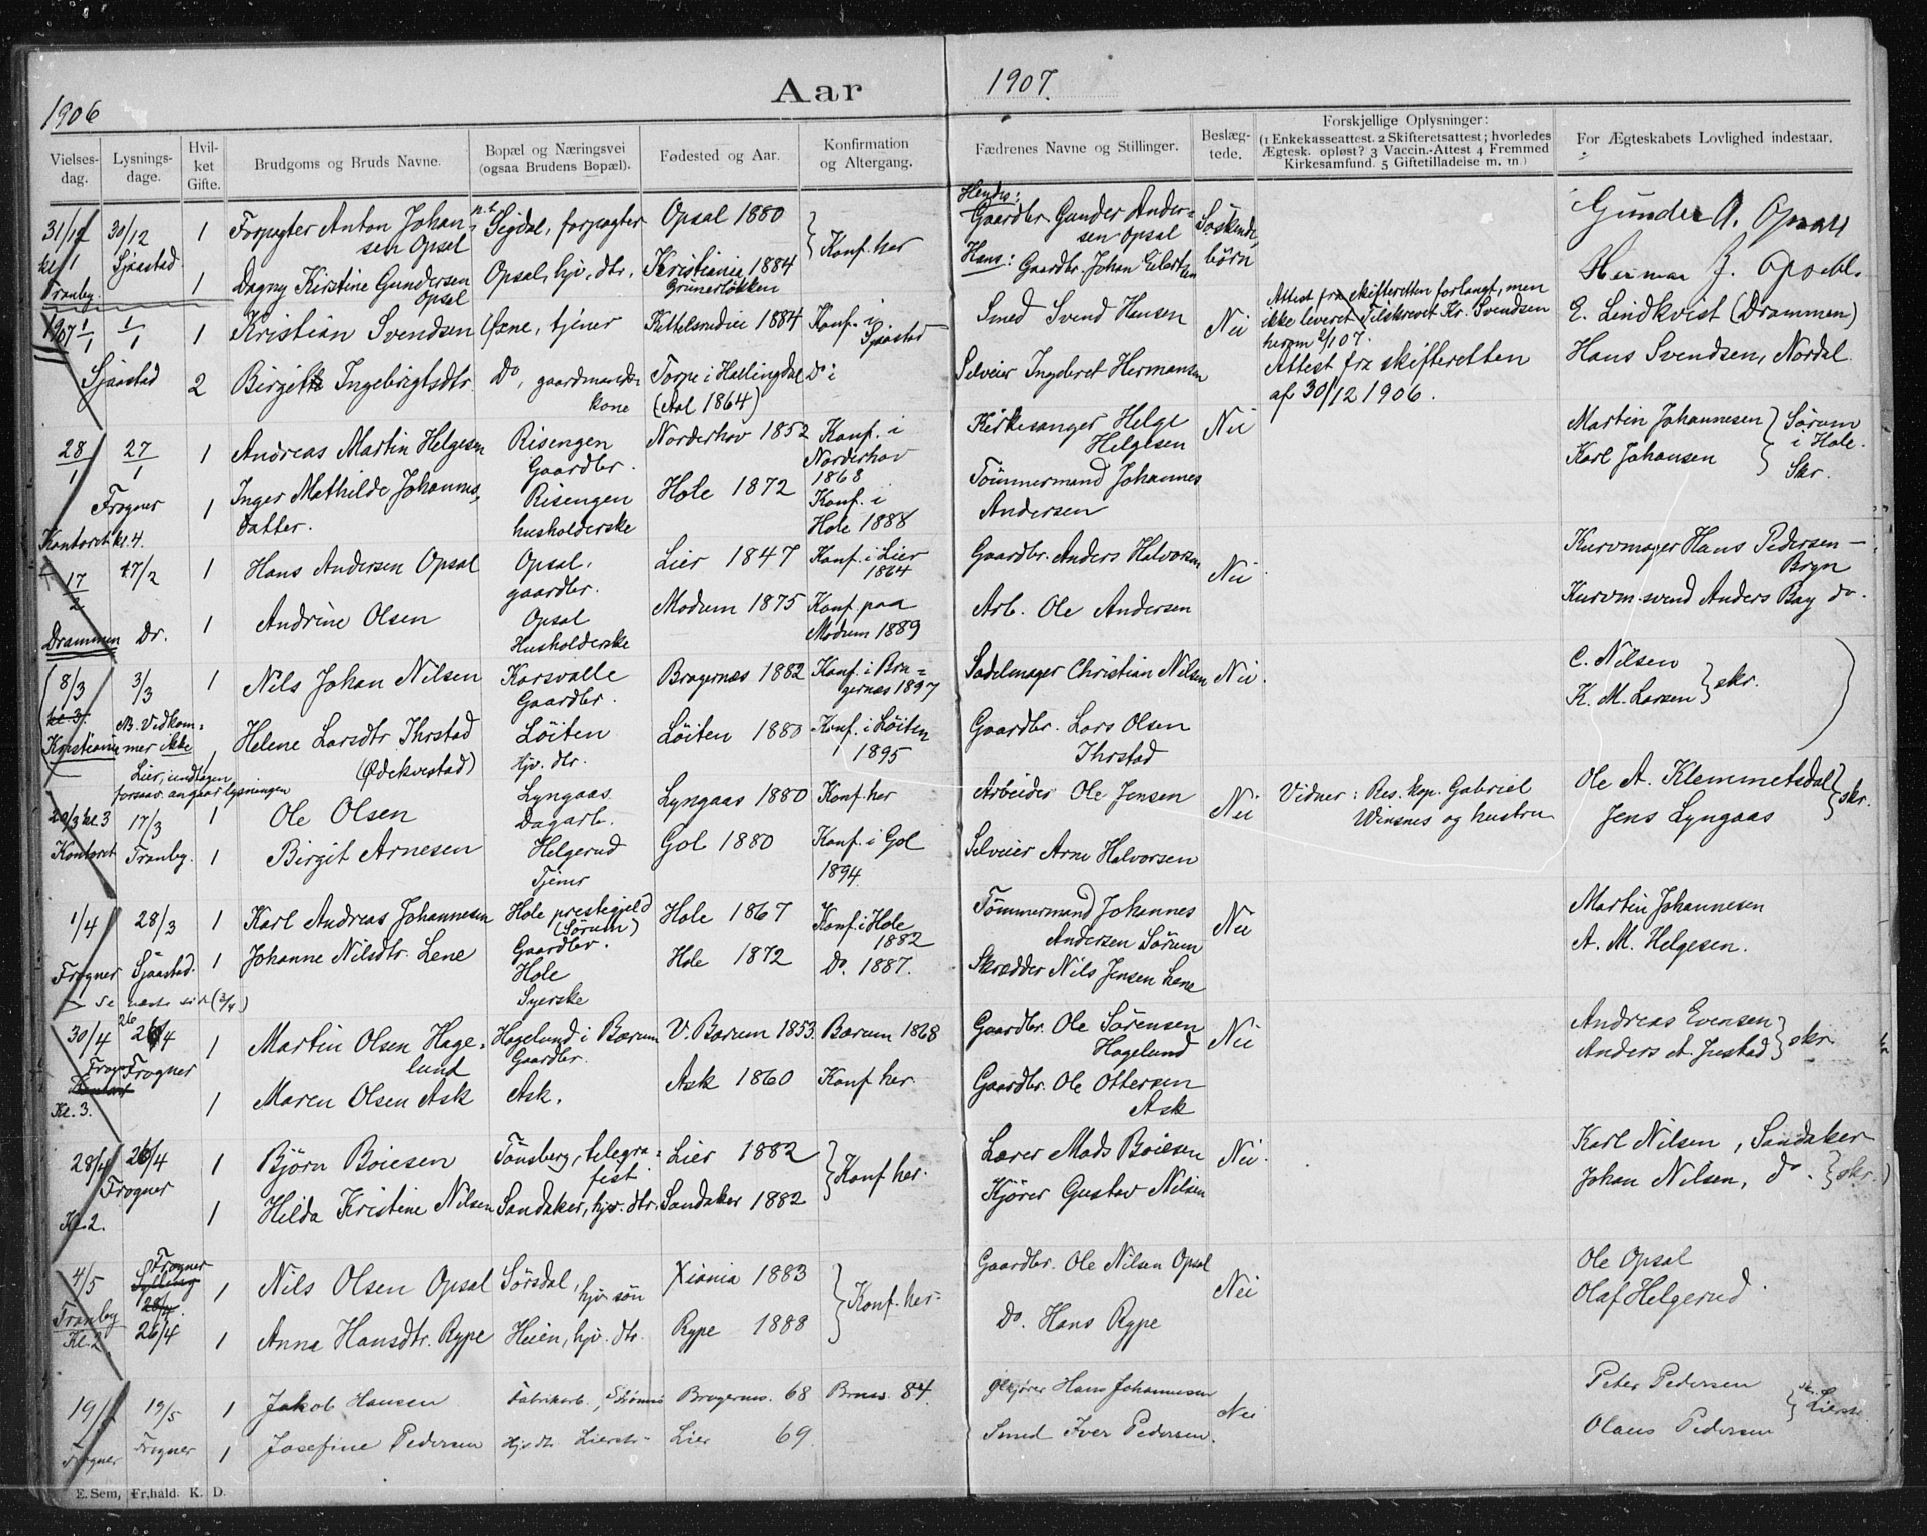 1906 Aar 1907.
Vielses-dag. Lysnings-dage. Hvil-ket Gifte. Brudgoms og Bruds Navne. Bopæl og Næringsvei (ogsaa Brudens Bopæl). Fødested og Aar. Konfirmation og Altergang. Fædrenes Navne og Stillinger. Beslæg-tede. Forskjellige Oplysninger: (1 Enkekasseattest. 2 Skifteretsattest; hvorledes Ægtesk. opløst? 3 Vaccin.-Attest 4 Fremmed Kirkesamfund. 5 Giftetilladelse m. m.) For Ægteskabets Lovlighed indestaar.
31/12 30/12 1 Forpagter Anton Johan- Sigdal, forpagter Opsal 1880 Hendes: Gaardbr. Gunder Ander- Søskende Gunder A. Opsal
kl 1 Sjaastad sen Opsal } Konf. her sen Opsal børn
Tranby. 1 Dagny Kirstine Gundersen Opsal Opsal, hjv. dtr. Kristiania 1884 Grünerløkken Hans: Gaardbr. Johan Eilertsen
1907 1/1 1/1 1 Kristian Svendsen Øxne, tjener 1884 Konf. i Sjaastad Smed Svend Hansen Nei Attest fra skifteretten forlangt, men E. Lindkvist (Drammen)
ikke leveret. Tilskrevet Kr. Svendsen
herom 2/1 07.
Sjaastad 2 Birgitte Ingebrigtsdtr. Do, gaardmands kone Torpe i Hallingdal (Aal 1864) Do i Selveier Ingebret Hermansen Attest fra skifteretten Hans Svendsen, Nordal
af 30/12 1906.
28/1 27/1 1 Andreas Martin Helgesen Risengen Gaardbr. Norderhov 1852 Konf. i Norderhov 1868 Kirkesanger Helge Helgesen Nei Martin Johannesen } Sørum i Hole.
Frogner 1 Inger Mathilde Johannes- datter. Risengen husholderske Hole 1872 Konf. i Hole 1888 Tømmermand Johannes Andersen Karl Johansen } Skr.
Kontoret kl. 4.
17/2 17/2 1 Hans Andersen Opsal Opsal, gaardbr. Lier 1847 Konf. i Lier 1864 Gaardbr. Anders Halvorsen Nei Kurvmager Hans Pedersen — Bryn
Drammen Dr. 1 Andrine Olsen Opsal Husholderske Modum 1875 Konf. paa Modum 1889 Arb. Ole Andersen Kurvm. svend Anders Bay do.
8/3 3/3 1 Nils Johan Nilsen Korsvolle Gaardbr. Bragernæs 1882 Konf. i Bra-gernæs 1897 Sadelmager Christian Nilsen Nei. C. Nilsen
kl. 3. K. M. Larsen } skr.
Kristiania NB. Vedkom-mer ikke Lier, undtagen forsaav. angaar lysningen 1 Helene Larsdtr. Ihrstad (Ødekvestad) Løiten Hjv. dtr. Løiten 1880 Konf. i Løiten 1895 Gaardbr. Lars Olsen Ihrstad
20/3 kl 3 17/3 1 Ole Olsen Lyngaas Dagarb. Lyngaas 1880 Konf. her Arbeider Ole Jensen Nei Vidner: Res. kap. Gabriel Ole A. Klemmetsdal } skr.
Kontoret Tranby. 1 Birgit Arnesen Helgerud Tjener Gol 1880 Konf. i Gol 1894 Selveier Arne Halvorsen Winsnes og hustru Jens Lyngaas
1/4 28/3 1 Karl Andreas Johannesen Hole prestegjeld (Sørum) Gaardbr. Hole 1867 Konf. i Hole 1882 Tømmermand Johannes Andersen Sørum Nei Martin Johannesen
Frogner Sjaastad. 1 Johanne Nilsdtr. Lene Hole Syerske Hole 1872 Do. 1887. Skrædder Nils Jensen Lene A. M. Helgesen.
Se næste side (3/4)
30/4 26/4 1 Martin Olsen Hage-lund Hagelund i Bærum Gaardbr. V. Bærum 1853. Bærum 1868 Gaardbr. Ole Sørensen Hagelund Nei Andreas Evensen
Frogner Anders A. Justad } skr.
Kl. 3. 1 Maren Olsen Ask Ask. Ask 1860 Konf. her. Gaardbr. Ole Ottersen Ask
28/4 26/4 1 Bjørn Boiesen Tønsberg, telegra-fist Lier 1882 } Konf her. Lærer Mads Boiesen Nei. Karl Nilsen, Sandaker
Frogner Kl. 2. 1 Hilda Kristine Nilsen Sandaker, hjv. dtr. Sandaker 1882 Kjører Gustav Nilsen Johan Nilsen, do. } skr.
4/5 Frogner Sylling 28/4 1 Nils Olsen Opsal Sørsdal, hjv. søn Xiania 1883 } Konf. her. Gaardbr. Ole Nilsen Opsal Nei Ole Opsal
Tranby Kl. 2. 26/4 1 Anna Hansdtr. Rype Heien, hjv. dtr. Rype 1888 Do. Hans Rype Olaf Helgerud
19/5 19/5 1 Jakob Hansen Fabrikarb., Strømsø Bragernæs. 68 Brnæs. 84. Hans Johannesen Nei Peter Pedersen
Frogner Frogner 1 Josefine Pedersen Hjv dtr Lierstr. Lier 69. Smed Iver Pedersen. Olaus Pedersen } Lierstr.
E. Sem, Fr.hald. K. D.